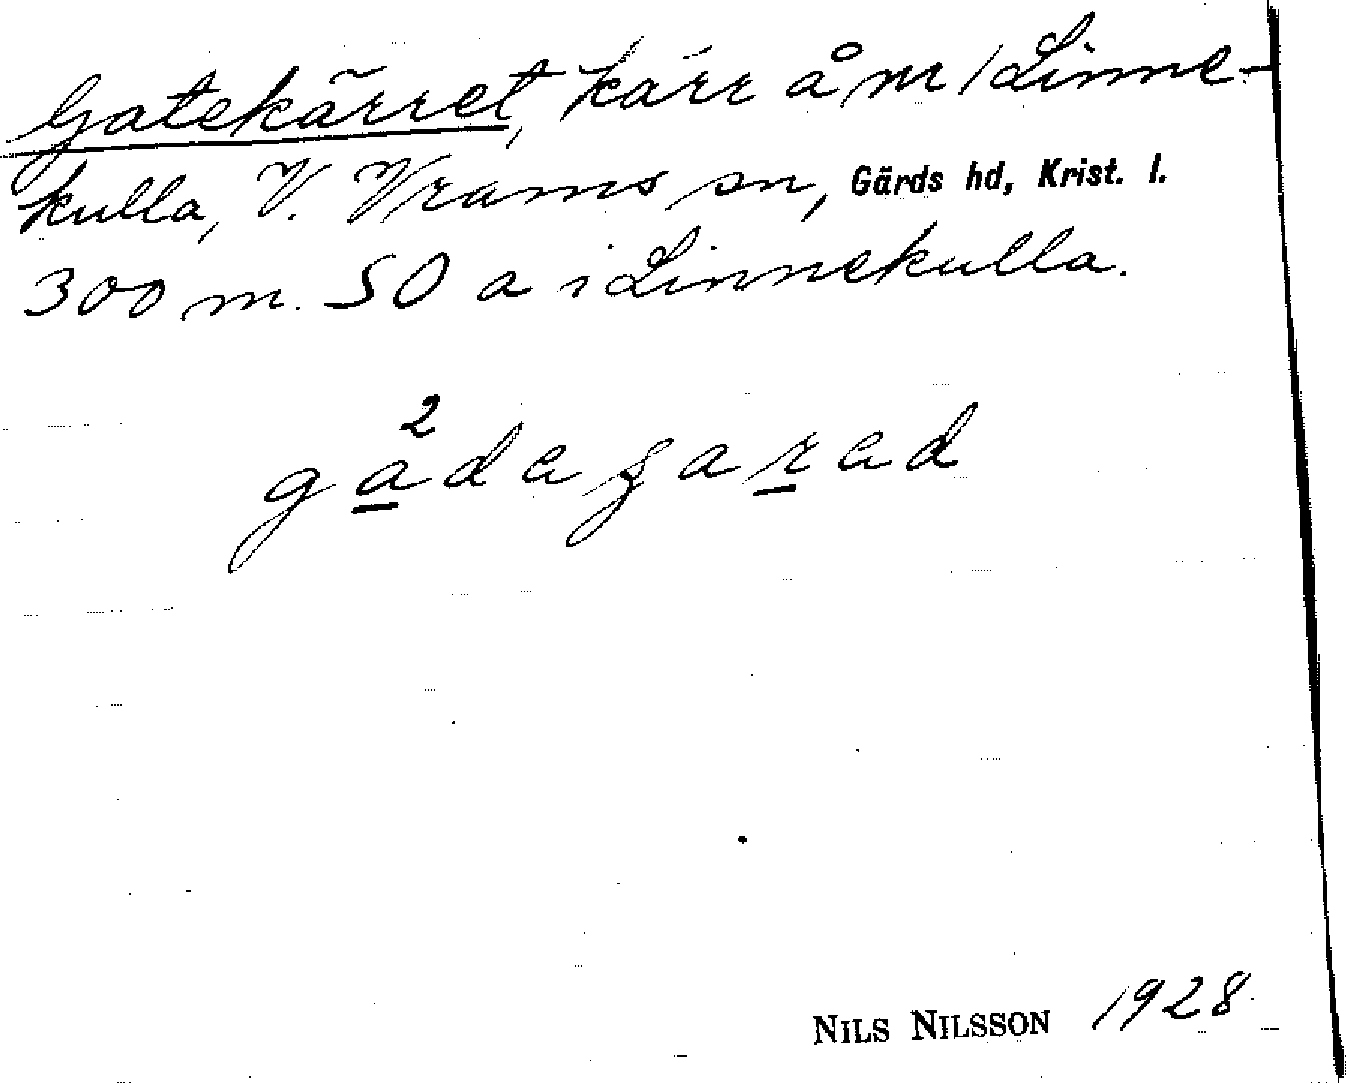 Gatekärret, kärr å nr 1 Linne-
kulla, V. Vrams sn, Gärds hd, Krist. l.
300 m. SO a i Linnekulla.
NILS NILSSON 1928